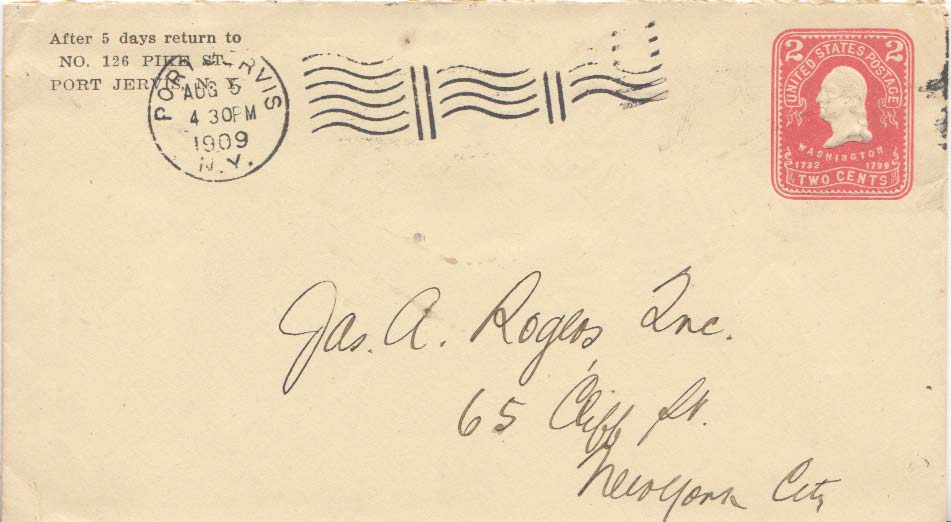 After 5 days return to
NO. 126 PIKE ST.
PORT JERVIS, N. Y.
PORT JERVIS
AUG 5
4 30PM
1909
N.Y.
2 2
UNITED STATES POSTAGE
WASHINGTON
1732 1799
TWO CENTS
Jas. A. Rogers Inc.
65 Cliff St.
New York City